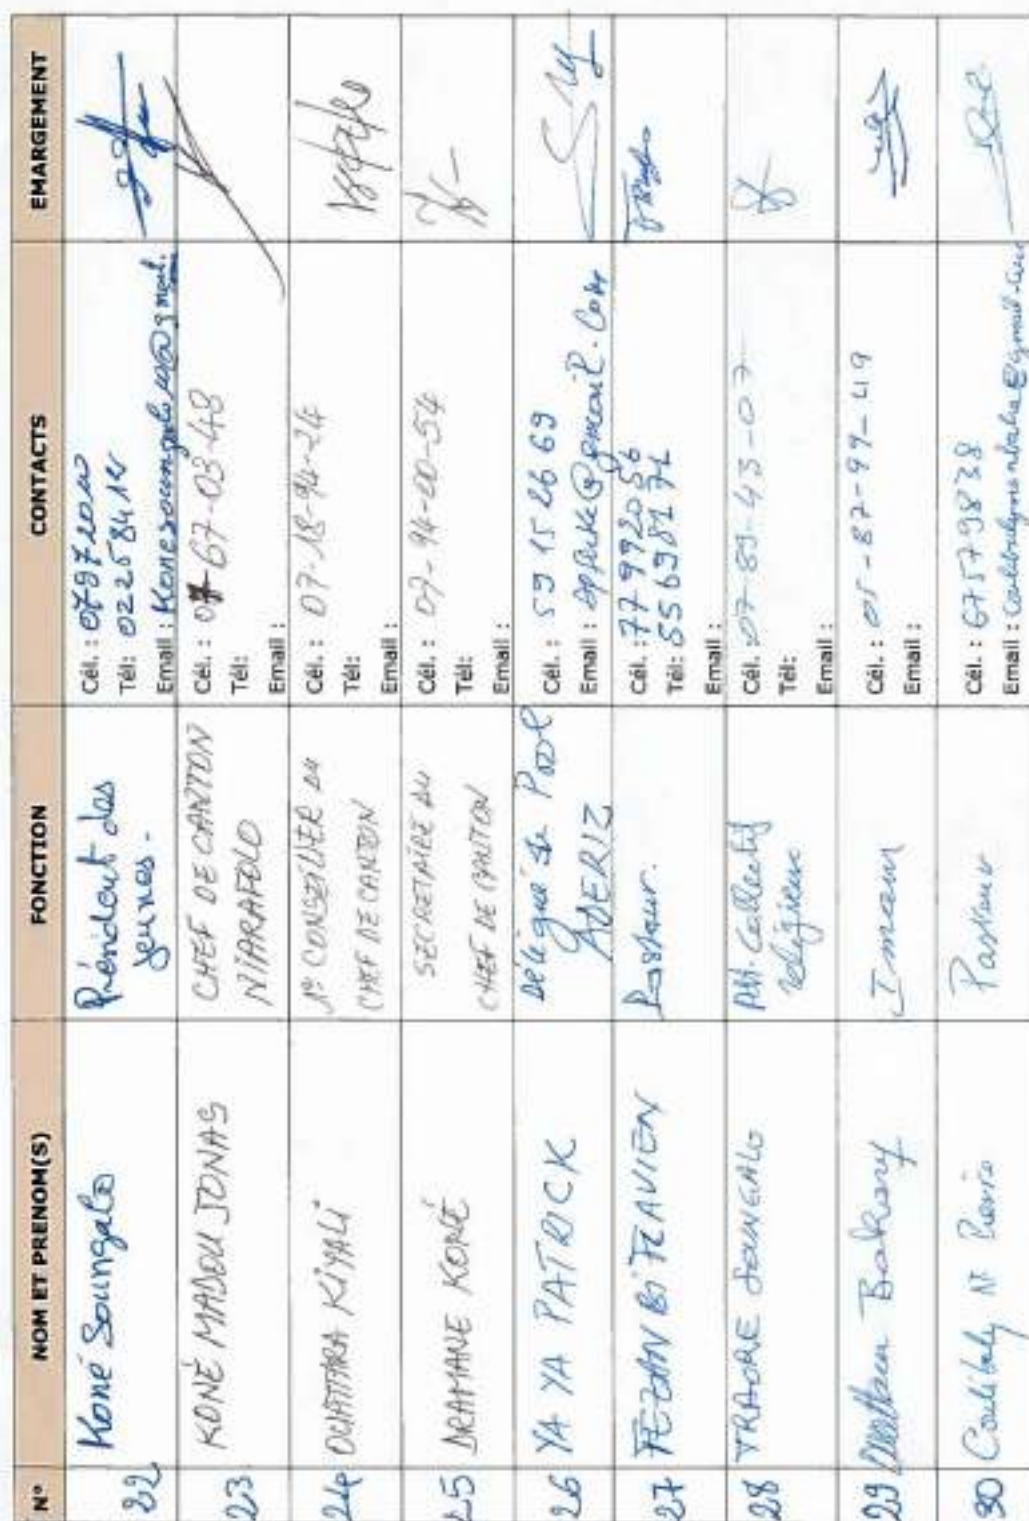 N° NOM ET PRENOM(S) FONCTION CONTACTS EMARGEMENT
22 Koné Soungalo Président des jeunes. Cél. :
Tél: 02258412
Email :
23 KONÉ MADOU JONAS CHEF DE CANTON NIARAFOLO Cél. : 07-67-03-48
Tél:
Email :
24 OUATTARA KIYALI 1er CONSEILLER DU CHEF DE CANTON Cél. : 07-18-94-24
Tél:
Email :
25 DRAMANE KONÉ SECRETAIRE DU CHEF DE CANTON Cél. : 07-94-00-54
Tél:
Email :
26 YA YA PATRICK Délégué de Pool Cél. : 59 15 26 69
Email :
27 BI FLAVIEN Pasteur. Cél. : 77 99 20 56
Tél: 55 69 81 71
Email :
28 TRAORE SOUNGALO Collectif religieux Cél. : 07-89-43-07
Tél:
Email :
29 Ouattara Bakary Imam Cél. : 05-87-99-49
Email :
30 Coulibaly N. Pierre Pasteur Cél. : 67579838
Email :